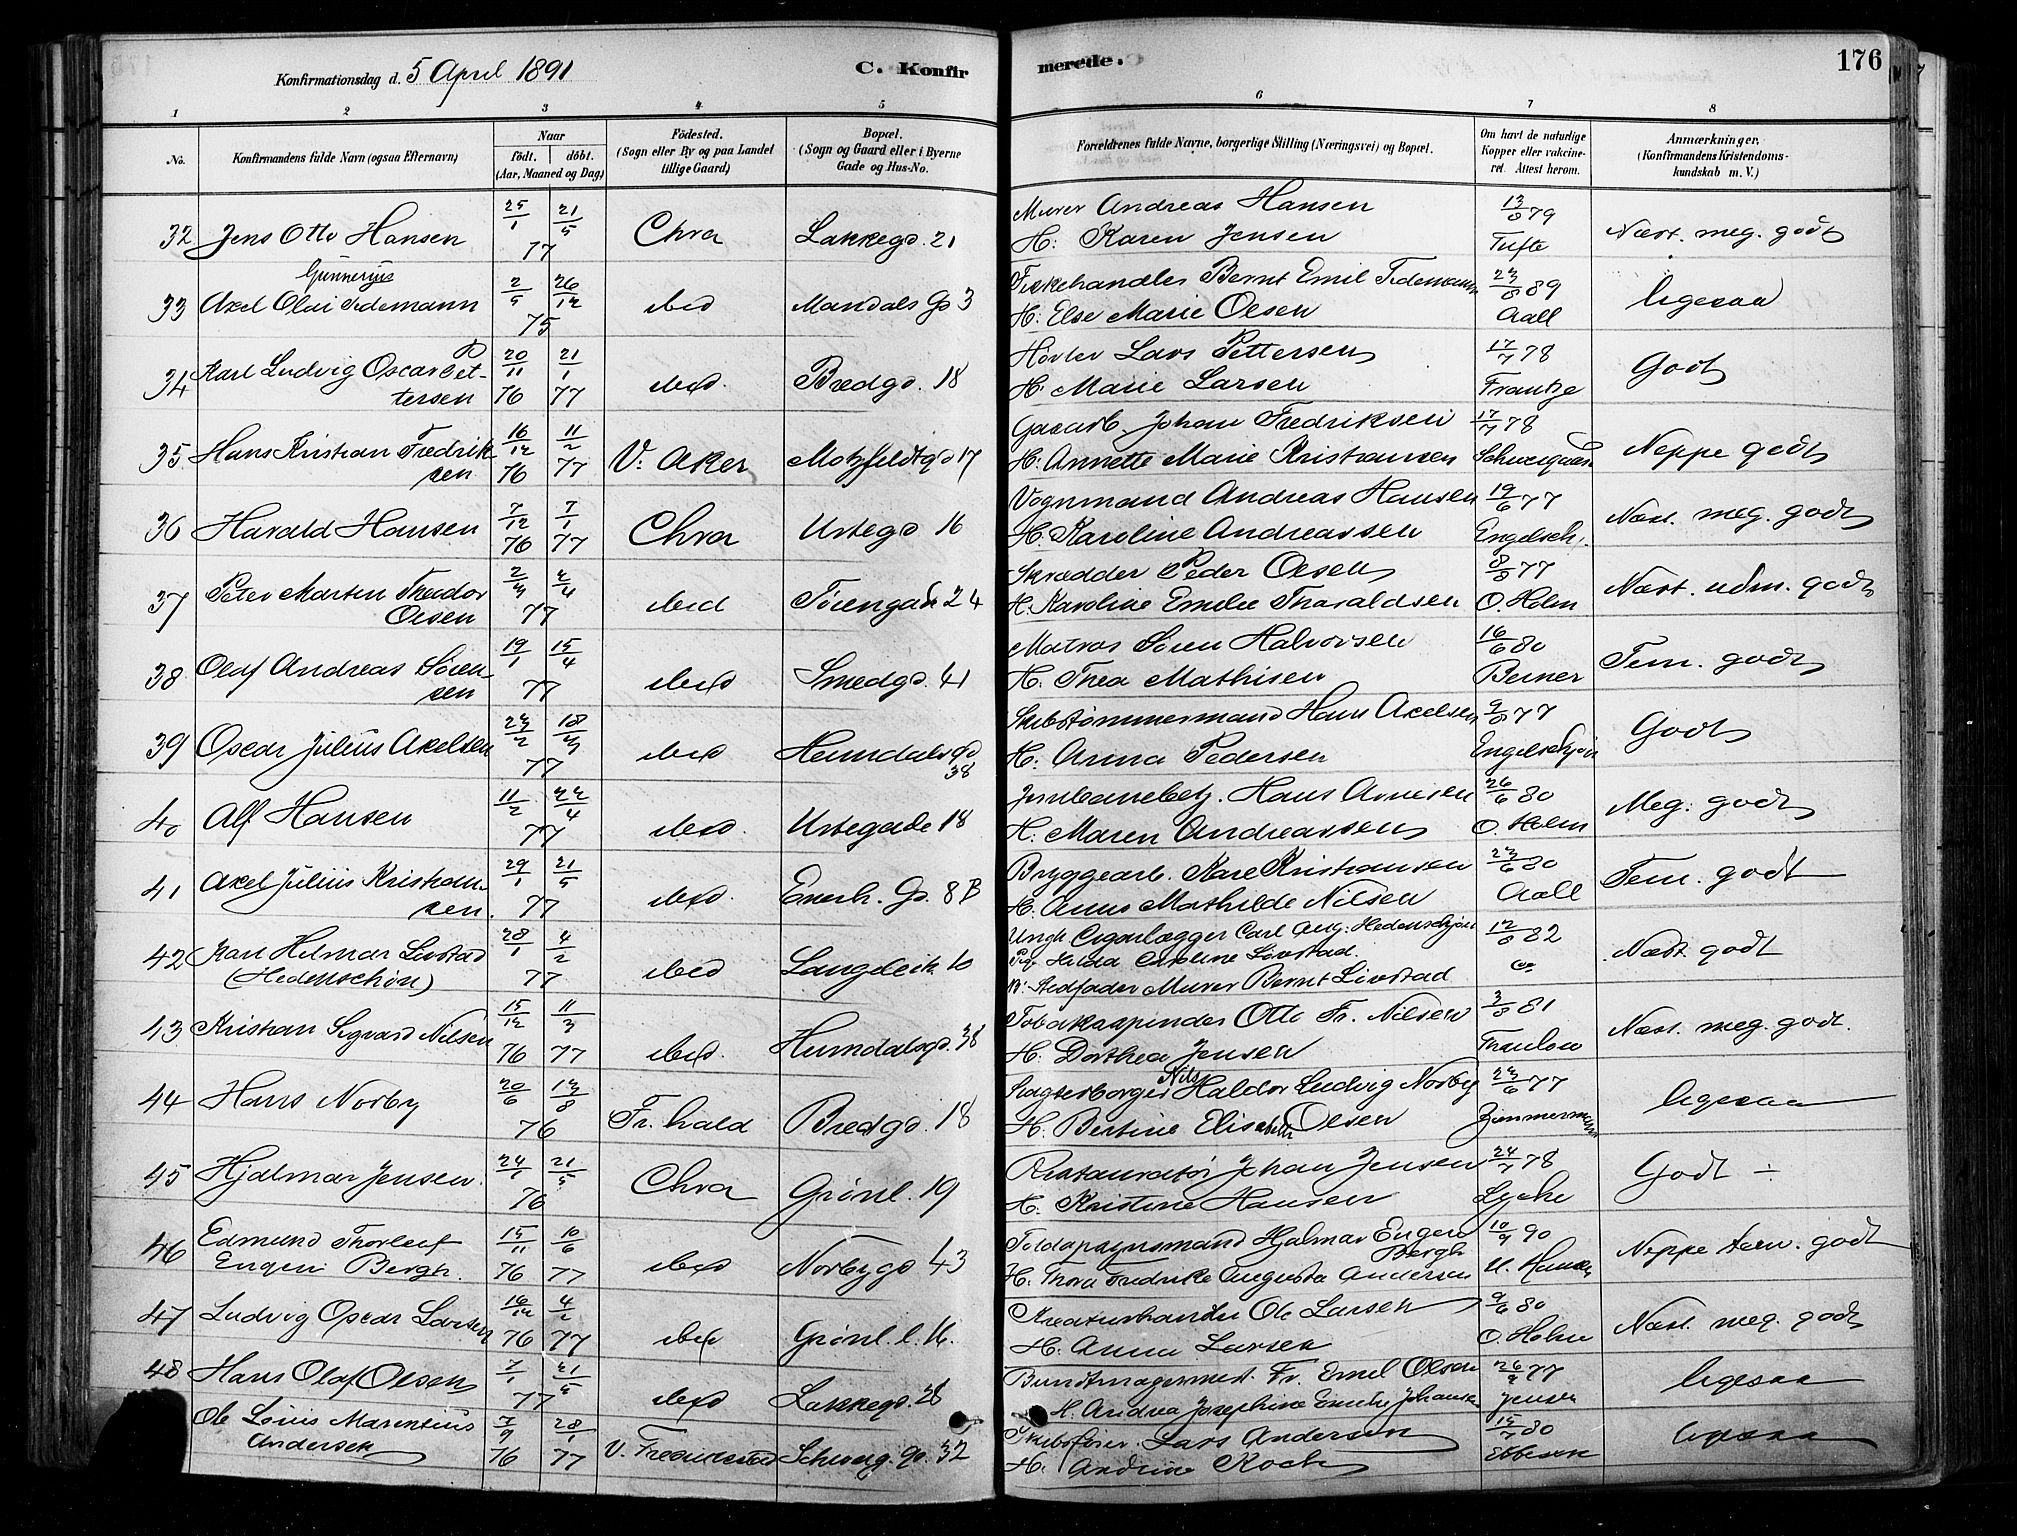 Konfirmationsdag d. 5 April 1891
C. Konfirmerede.
176
1 2 3 4 5 6 7 8
No.
Konfirmandens fulde Navn (ogsaa Efternavn)
Naar
født. døbt.
(Aar, Maaned og Dag)
Födested.
(Sogn eller By og paa Landet
tillige Gaard)
Bopæl.
(Sogn og Gaard eller i Byerne
Gade og Hus-No.
Forældrenes fulde Navne, borgerlige Stilling (Næringsvei) og Bopæl.
Om havt de naturlige
Kopper eller vakcine-
ret. Attest herom.
Anmærkninger.
(Konfirmandens Kristendoms-
kundskab m. V.)
32 Jens Otto Hansen 25/1 21/5 77 Chra Lakkegd. 21 Murer Andreas Hansen 13/8 79 Næst. meg. godt
H: Karen Jensen Tufte
33 Axel Olai Gunnerius Tidemann 2/5 26/12 75 ibid Mandals Gd 3 Fiskehandler Bernt Emil Tidemann 23/8 89 ligesaa
H: Else Marie Olsen Aall
34 Karl Ludvig Oscar Pet- 20/11 21/1 ibid. Bredgd. 18 Høvler Lars Pettersen 17/7 78 Godt
tersen 76 77 H: Marie Larsen Frantze
35 Hans Kristian Fredrik 16/12 11/2 V. Aker Motzfeldtgd 17 Gasarb. Johan Fredriksen 17/7 78 Neppe godt
sen 76 77 H: Annette Marie Kristiansen
36 Harald Hansen 7/12 7/1 Chra Urtegd 16 Vognmand Andreas Hansen 19/6 77 Næst. meg. godt
76 77 H. Karoline Andreassen Engelsch.
37 Peter Marten Theodor 2/3 2/4 ibid Töiengade 24 Skrædder Peder Olsen 8/8 77 Næst. udm. godt
Olsen 77 H. Karoline Emilie Tharaldsen O. Holm
38 Olaf Andreas Sören- 19/1 15/4 ibid Smedgd. 41 Matros Sören Halvorsen 16/6 80 Tem. godt
sen 77 H. Thea Mathisen Berner
39 Oscar Julius Axelsen 23/2 18/3 77 ibid Heimdals Gd 38 Skibstømmermand Hans Axelsen 9/8 77 Godt
H. Anna Pedersen Engelschjön
40 Alf Hansen 11/2 22/4 77 ibid. Urtegade 18 Jernbanebetj. Hans Arnesen 26/6 80 Meg. godt
H. Maren Andreassen O. Holm
41 Axel Julius Kristian- 29/1 21/5 ibid. Enerh. Gd. 8 B Bryggearb. Karl Kristiansen 23/6 80 Tem. godt
sen. 77 H. Anna Mathilde Nilsen Aall
42 Karl Hilmar Livstad 28/1 4/2 ibid Langleik 10 Ungk Cigarlægger Carl Aug. Hedenschjön 12/8 82 Næst. godt
(Hedenschön) 77 Pig. Hilda Caroline Lövstad.
Stedfader Murer Bernt Livstad
43 Kristian Sigvard Nilsen 15/12 11/3 ibid. Heimdalsgd. 38 Tobakspinder Otto Fr. Nilsen 3/8 81 Næst. meg. godt.
76 77 H. Dorthea Jensen Thaulow
44 Hans Norby 20/6 13/8 76 Fr.hald Bredgd. 18 Slagterborger Nils Haldor Ludvig Norby 23/6 77 ligesaa
H. Bertine Elisabeth Olsen Zimmermann
45 Hjalmar Jensen. 24/1 21/5 76 Chra Grønl. 19 Restauratör Johan Jensen 24/7 78 Godt ÷
H. Kristine Hansen Lyche
46 Edmund Thorleif 15/11 10/6 ibid Norbygd 43 Toldopsynsmand Hjalmar Eugen 10/9 90 Neppe tem. godt
Eugen Bergh. 76 77 Bergh
H. Thora Fredrike Augusta Andersen U. Hansen
47 Ludvig Oscar Larsen 16/12 4/2 ibid Grønl. l. 16. Kreaturhandler Ole Larsen 9/6 80 Næst. meg. godt
76 77 H. Anna Larsen O. Holm
48 Hans Olaf Olsen 7/1 21/5 77 ibid Lakkegd. 28 Buntmagermest. Fr. Emil Olsen 26/2 77 ligesaa
H. Andrea Josephine Emilie Johansen Jensen
Ole Louis Marentius 7/9 28/1 V. Fredrikstad Schweig. gd. 32 Skibsfører Lars Andersen 15/7 80 ligesaa
Andersen 76 77 H. Andrine Koch Ebbesen